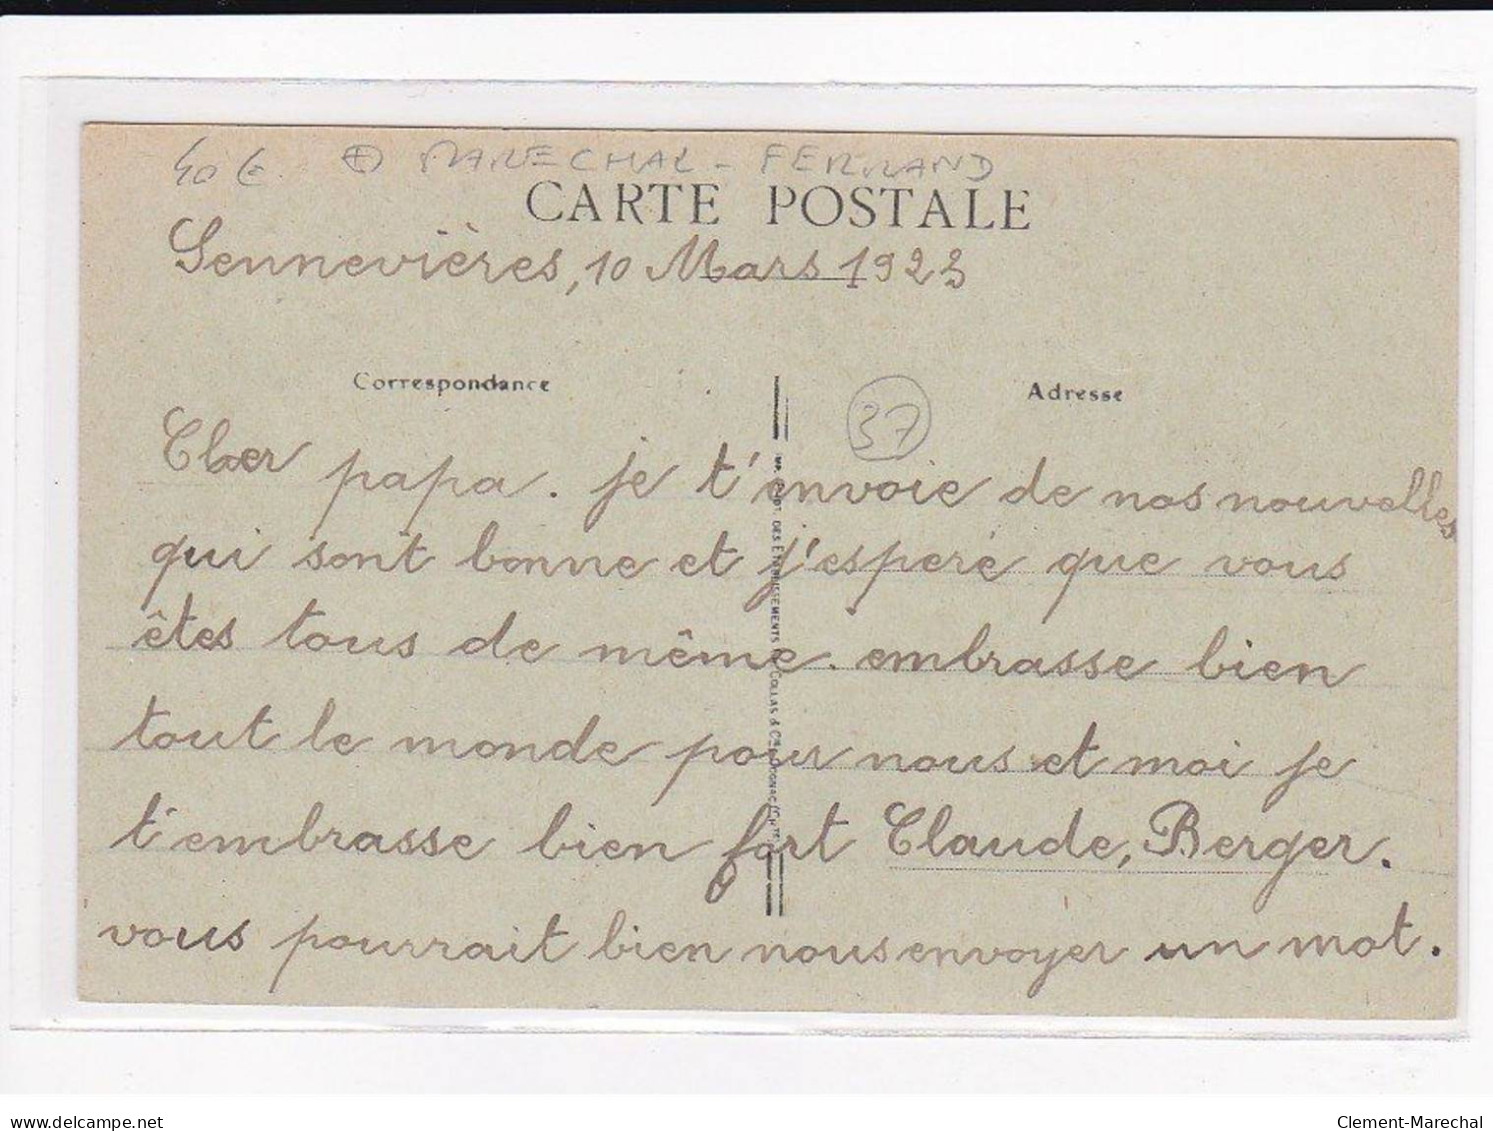 40 € MARECHAL - FERRAND
CARTE POSTALE
Sennevières, 10 Mars 1923
Correspondance
Adresse
37
Cher papa. je t'envoie de nos nouvelles
qui sont bonne et j'esperé que vous
êtes tous de même. embrasse bien
tout le monde pour nous et moi je
t'embrasse bien fort Claude, Berger.
vous pourrait bien nous envoyer un mot.
DES ETABLISSEMENTS COLLAS & Cie
delcampe.net
Clement-Marechal